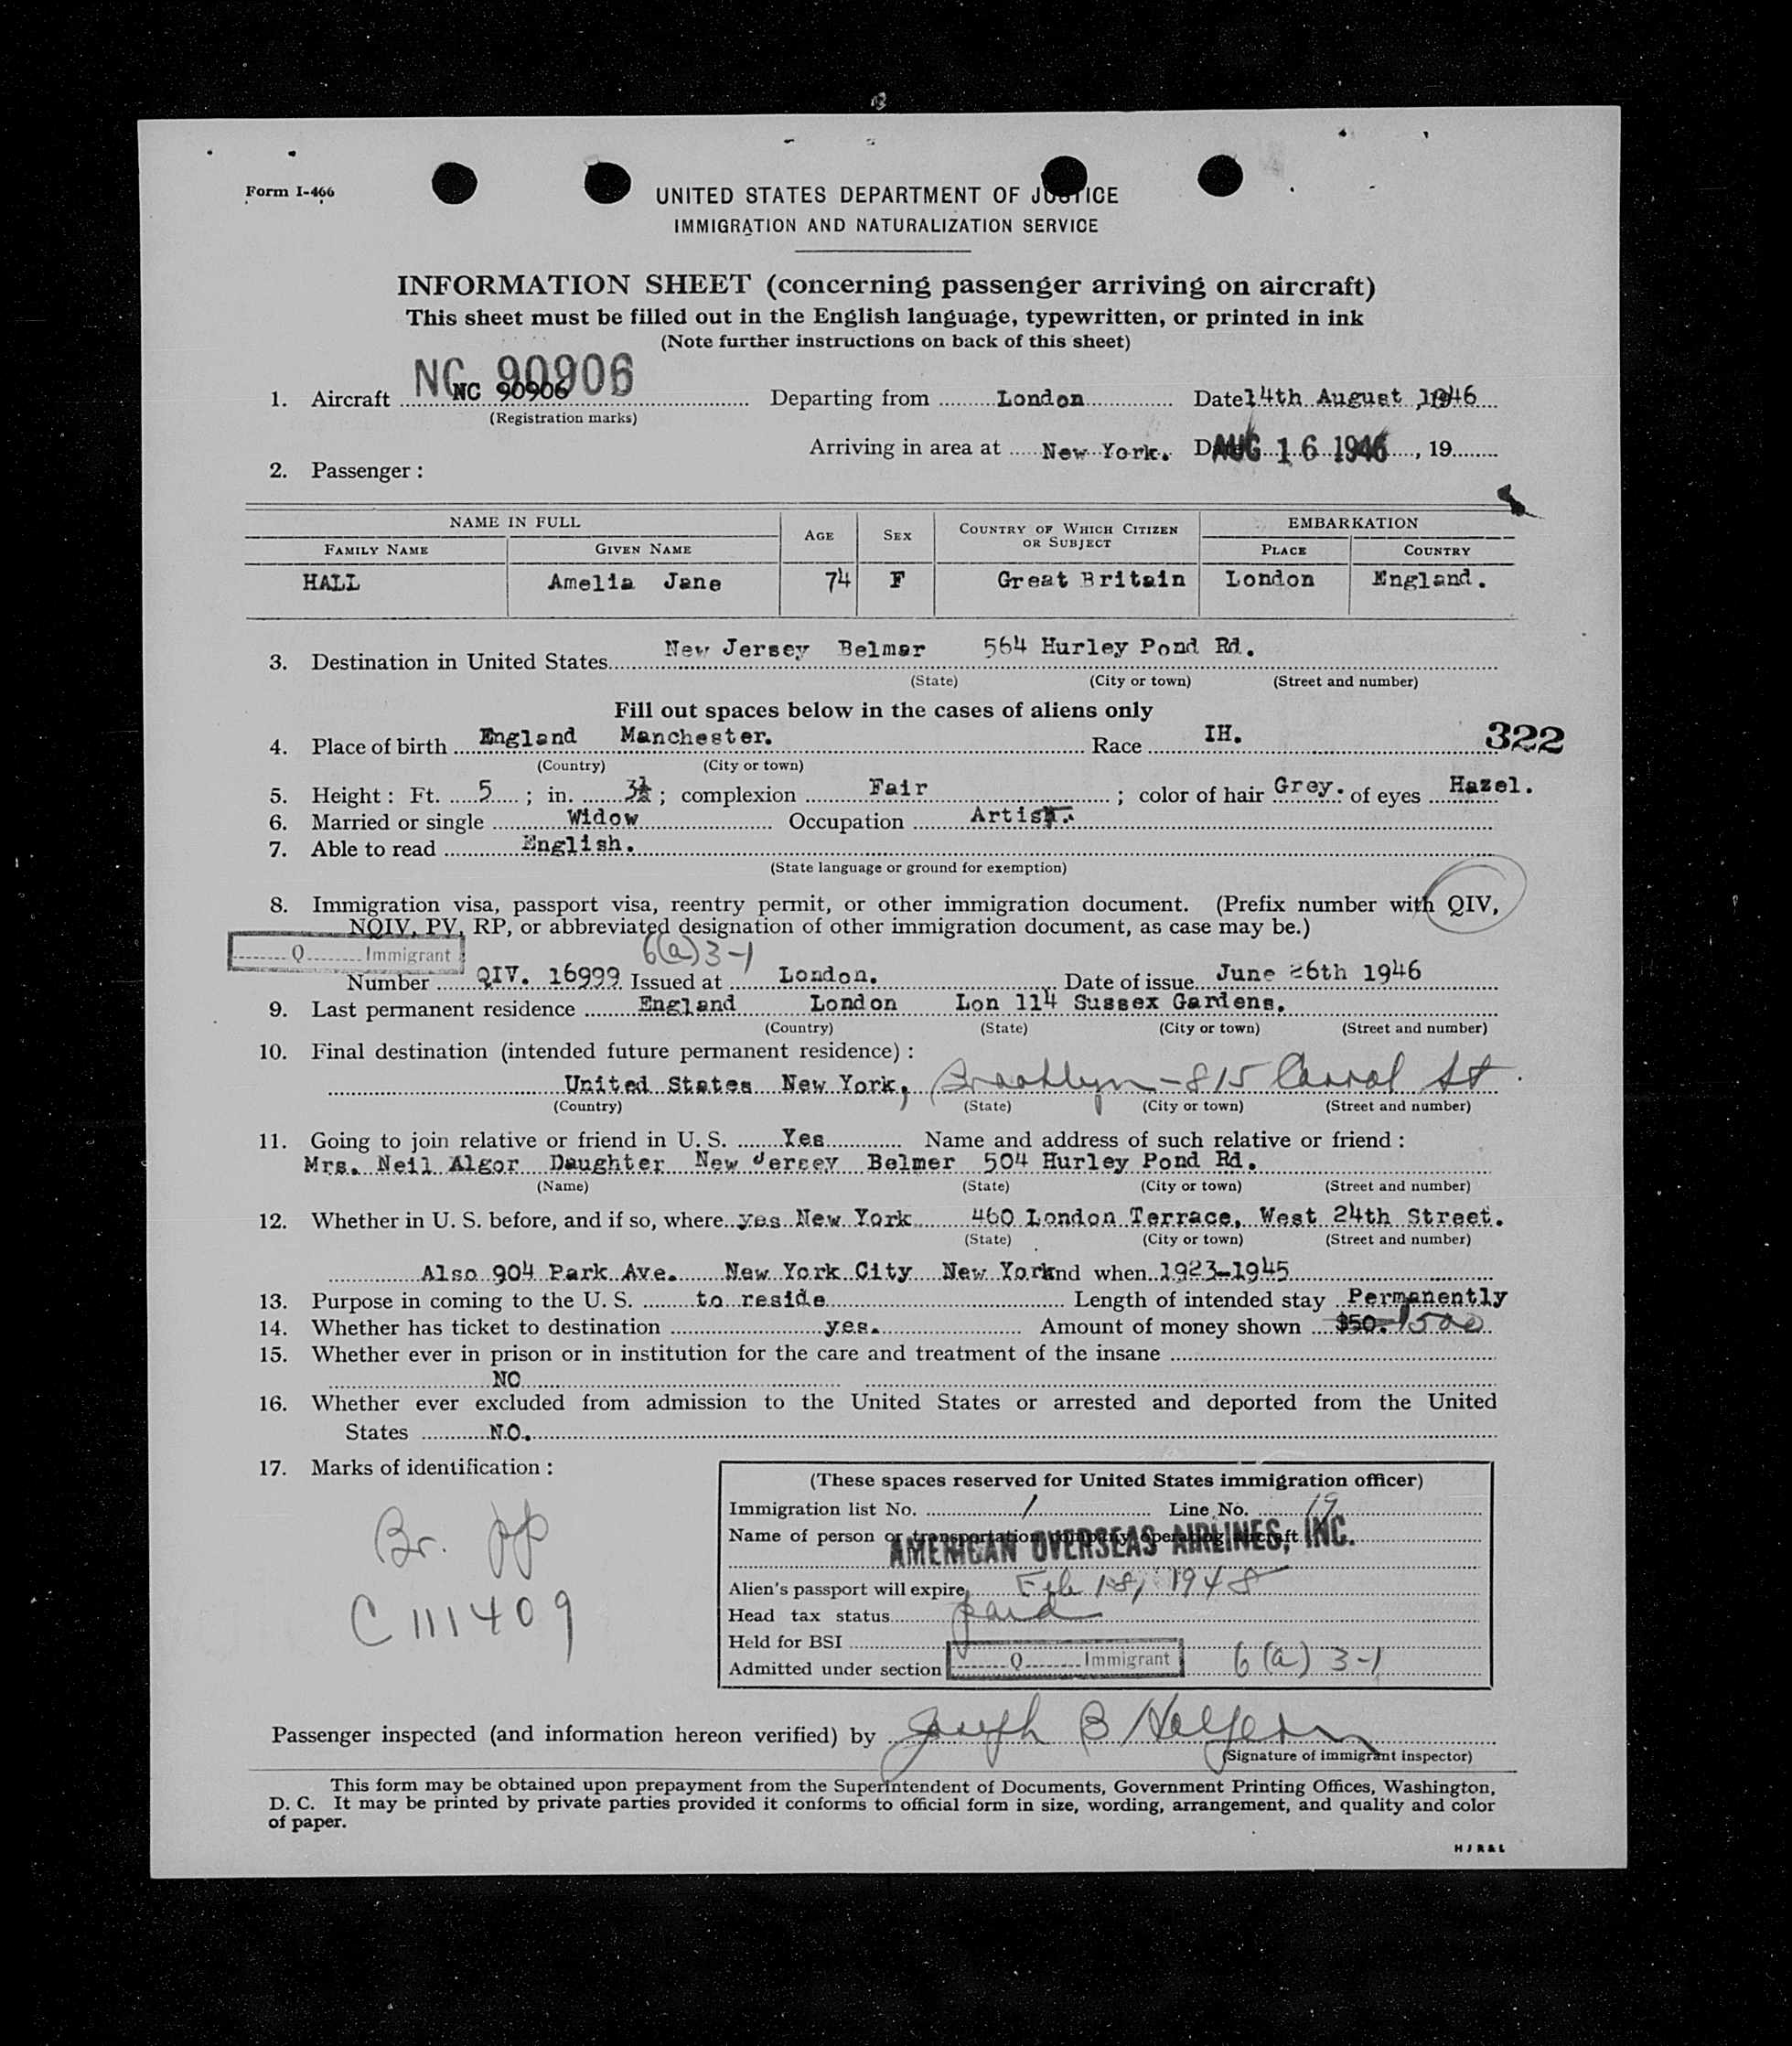 Form I-466
UNITED STATES DEPARTMENT OF JUSTICE
IMMIGRATION AND NATURALIZATION SERVICE
INFORMATION SHEET (concerning passenger arriving on aircraft)
This sheet must be filled out in the English language, typewritten, or printed in ink
(Note further instructions on back of this sheet)
NC 90906
1. Aircraft NC 90906 Departing from London Date 14th August, 1946
(Registration marks)
Arriving in area at New York. Date AUG 16 1946, 19
2. Passenger :
NAME IN FULL AGE SEX COUNTRY OF WHICH CITIZEN OR SUBJECT EMBARKATION
FAMILY NAME GIVEN NAME PLACE COUNTRY
HALL Amelia Jane 74 F Great Britain London England.
3. Destination in United States New Jersey Belmar 564 Hurley Pond Rd.
(State) (City or town) (Street and number)
Fill out spaces below in the cases of aliens only
4. Place of birth England Manchester. Race IH. 322
(Country) (City or town)
5. Height : Ft. 5 ; in. 3½ ; complexion Fair ; color of hair Grey. of eyes Hazel.
6. Married or single Widow Occupation Artist.
7. Able to read English.
(State language or ground for exemption)
8. Immigration visa, passport visa, reentry permit, or other immigration document. (Prefix number with QIV,
NQIV, PV, RP, or abbreviated designation of other immigration document, as case may be.)
Q Immigrant 6(a)3-1
Number QIV. 16999 Issued at London. Date of issue June 26th 1946
9. Last permanent residence England London Lon 114 Sussex Gardens.
(Country) (State) (City or town) (Street and number)
10. Final destination (intended future permanent residence) :
United States New York, Brooklyn - 815 Carrol St
(Country) (State) (City or town) (Street and number)
11. Going to join relative or friend in U. S. Yes Name and address of such relative or friend :
Mrs. Neil Algor Daughter New Jersey Belmer 504 Hurley Pond Rd.
(Name) (State) (City or town) (Street and number)
12. Whether in U. S. before, and if so, where yes New York 460 London Terrace, West 24th Street.
(State) (City or town) (Street and number)
Also 904 Park Ave. New York City New York and when 1923-1945
13. Purpose in coming to the U. S. to reside Length of intended stay Permanently
14. Whether has ticket to destination yes. Amount of money shown $50. 1500
15. Whether ever in prison or in institution for the care and treatment of the insane
NO
16. Whether ever excluded from admission to the United States or arrested and deported from the United
States NO.
17. Marks of identification :
Br. pp
C 111409
(These spaces reserved for United States immigration officer)
Immigration list No. 1 Line No. 19
Name of person or transportation company operating aircraft
AMERICAN OVERSEAS AIRLINES, INC.
Alien's passport will expire Feb 18, 1948
Head tax status paid
Held for BSI
Admitted under section Q Immigrant 6(a) 3-1
Passenger inspected (and information hereon verified) by Joseph B
(Signature of immigrant inspector)
This form may be obtained upon prepayment from the Superintendent of Documents, Government Printing Offices, Washington,
D. C. It may be printed by private parties provided it conforms to official form in size, wording, arrangement, and quality and color
of paper.
HJR&L